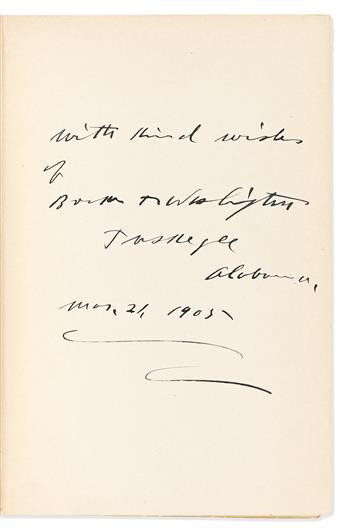 With kind wishes
of
Booker T. Washington
Tuskegee
Alabama.
Mar. 21, 1905